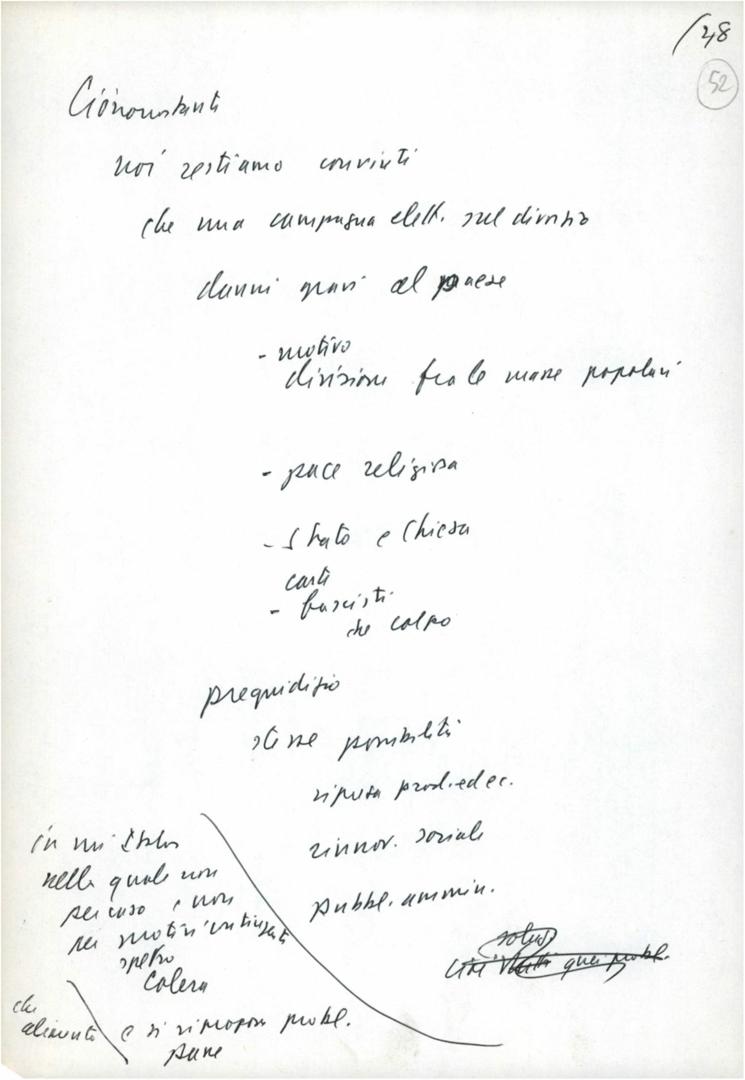 /48
52
Ciononostante
noi restiamo convinti
che una campagna elett. sul divorzio
danni gravi al paese
- motivo
divisione fra le masse popolari
- pace religiosa
- Stato e Chiesa
- fascisti
che colpo
pregiudizio
stesse possibilità
ripresa prod. ed ec.
rinnov. sociale
pubbl. ammin.
in un'Italia
nella quale non
per caso e non
per motivi
spettro
colera
che
alimenta
e si ripropone probl.
pane
quei probl.